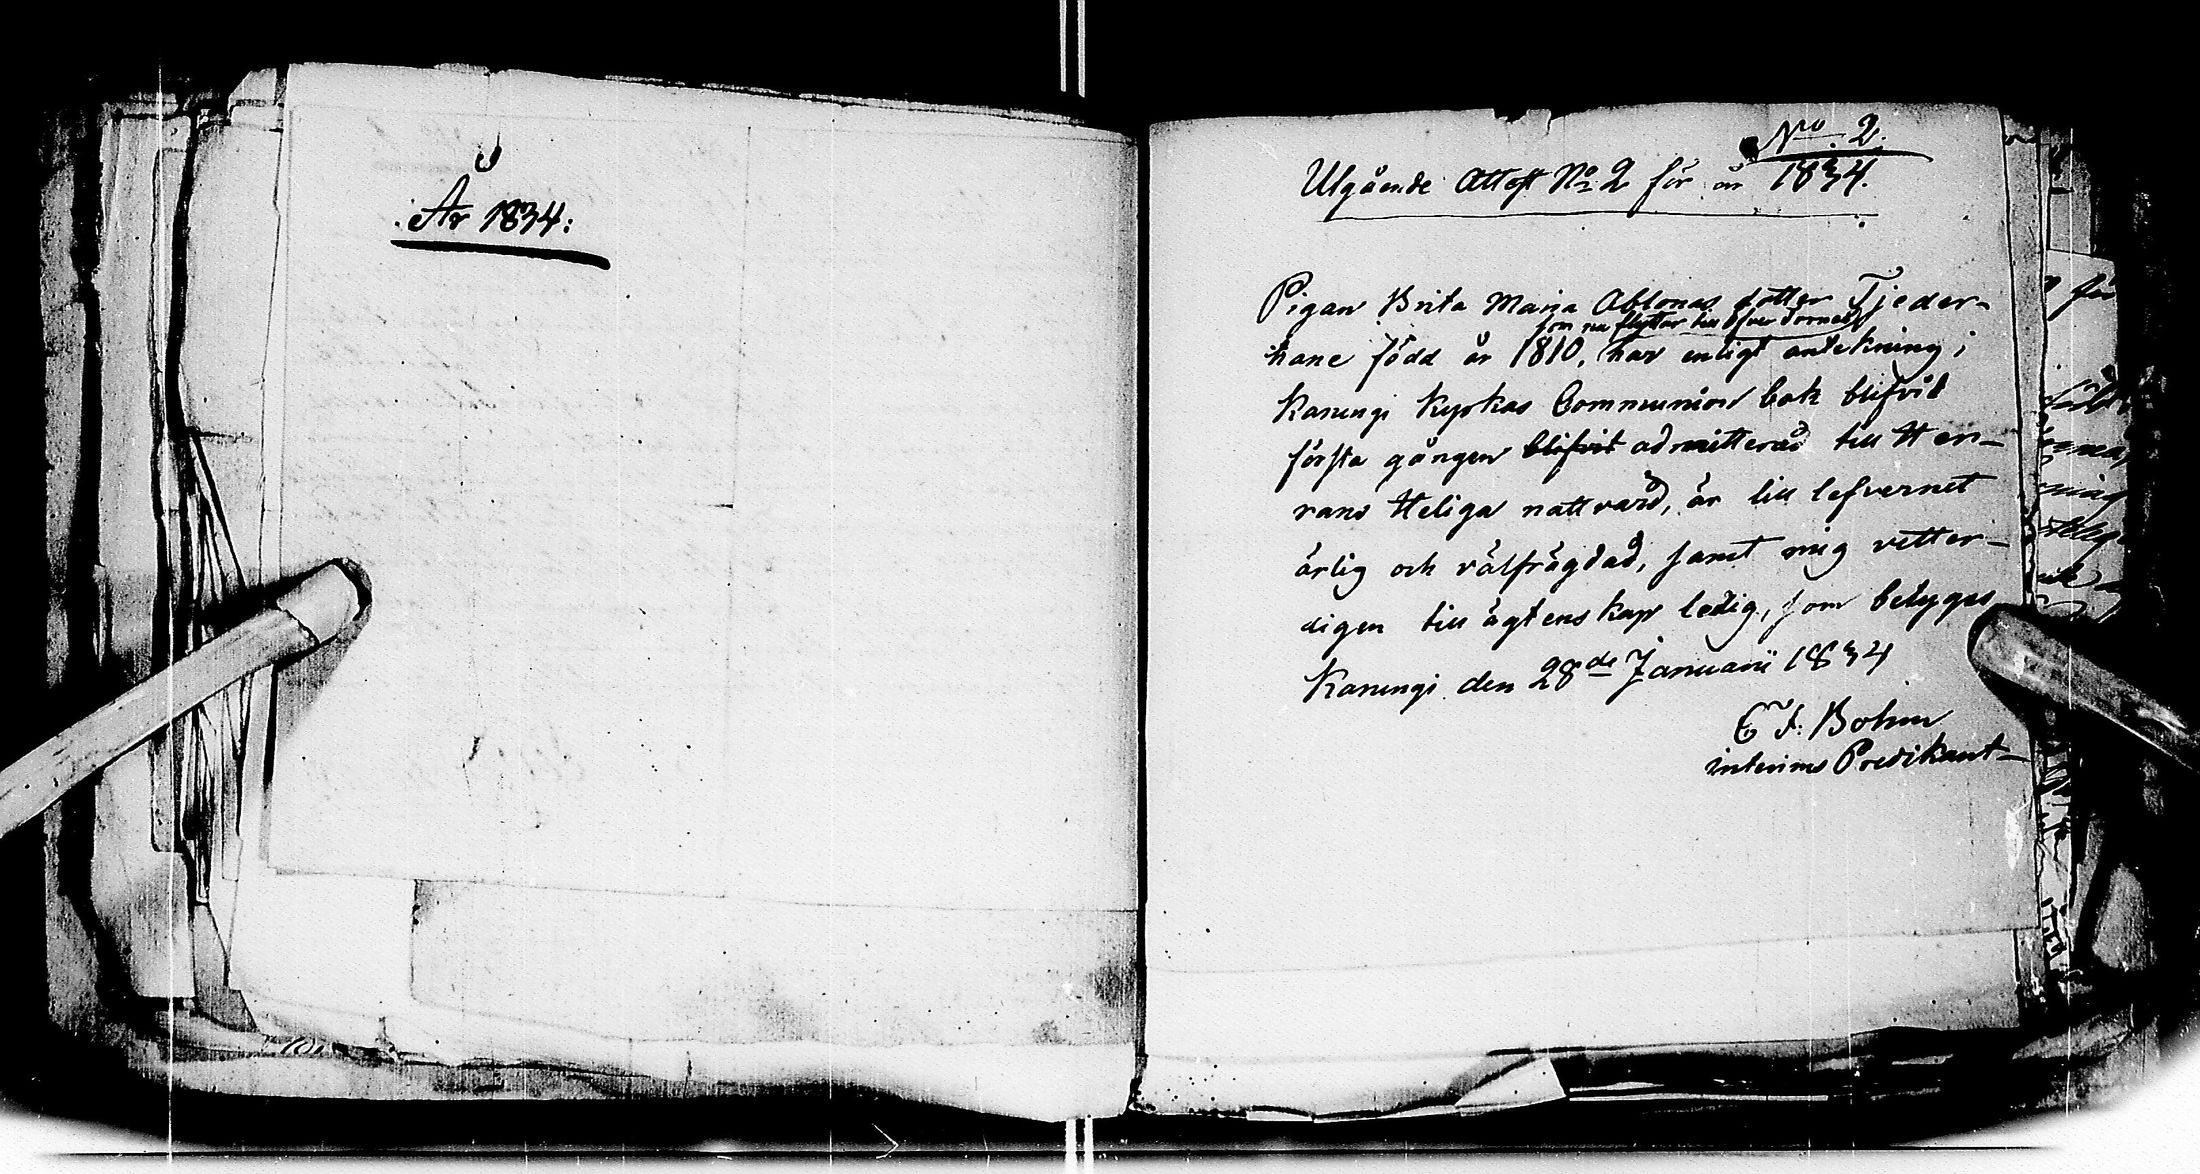 År 1834:
No. 2.
Utgående Attest No 2 för år 1834.
Pigan Brita Maria Ablonas dotter Tjeder-
som nu flyttar till Öfver Torneå
hane född år 1810, har enligt antekning i
Karungi Kyrkas Communion bok blifvit
första gången blifvit admitterad till Her-
rans Heliga nattvard, är till lefvernet
ärlig och välfrägdad, samt mig vetter-
digen till ägtenskap ledig, som betygas
Karungi den 28de Januarii 1834
E F. Bohm
interims Predikant